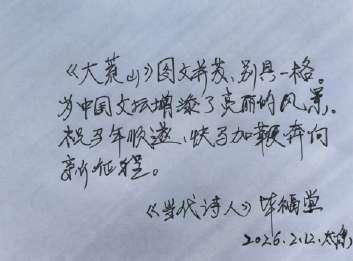 《大荒山》图文并茂、别具一格。
为中国文坛增添了亮丽的风景。
祝马年顺遂、快马加鞭奔向
新征程。
《当代诗人》陈福堂
2026.2.12.太原